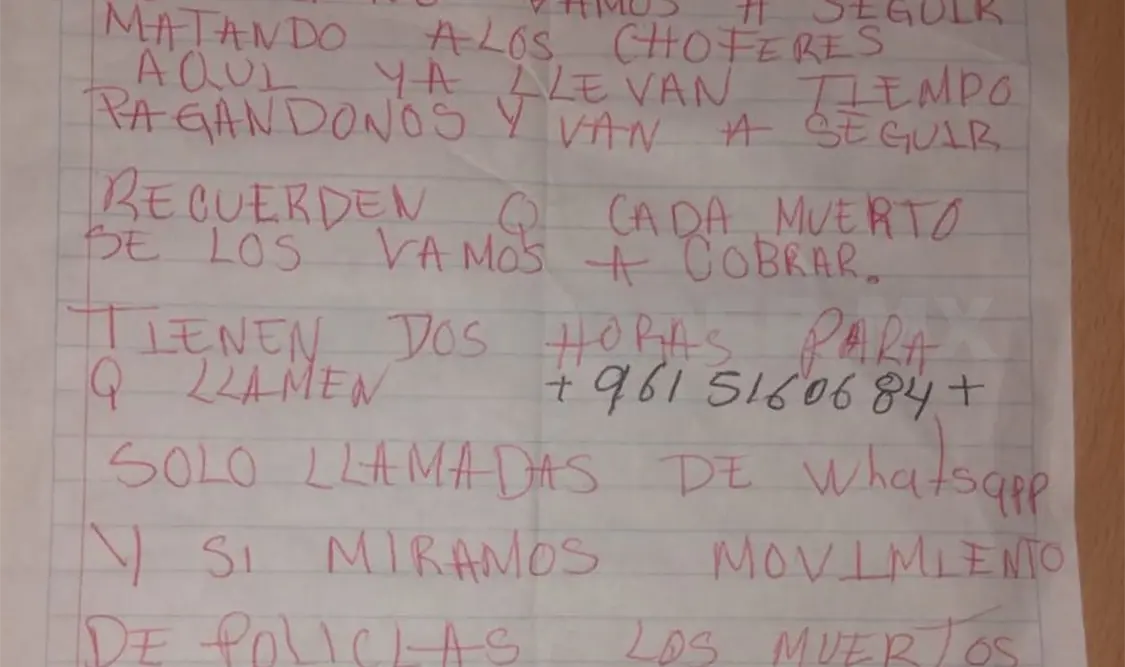 VAMOS A SEGUIR
MATANDO A LOS CHOFERES
AQUI YA LLEVAN TIEMPO
PAGANDONOS Y VAN A SEGUIR
RECUERDEN Q CADA MUERTO
SE LOS VAMOS A COBRAR.
TIENEN DOS HORAS PARA
Q LLAMEN +961 5160684+
SOLO LLAMADAS DE Whatsapp
Y SI MIRAMOS MOVIMIENTO
DE POLICIAS LOS MUERTOS